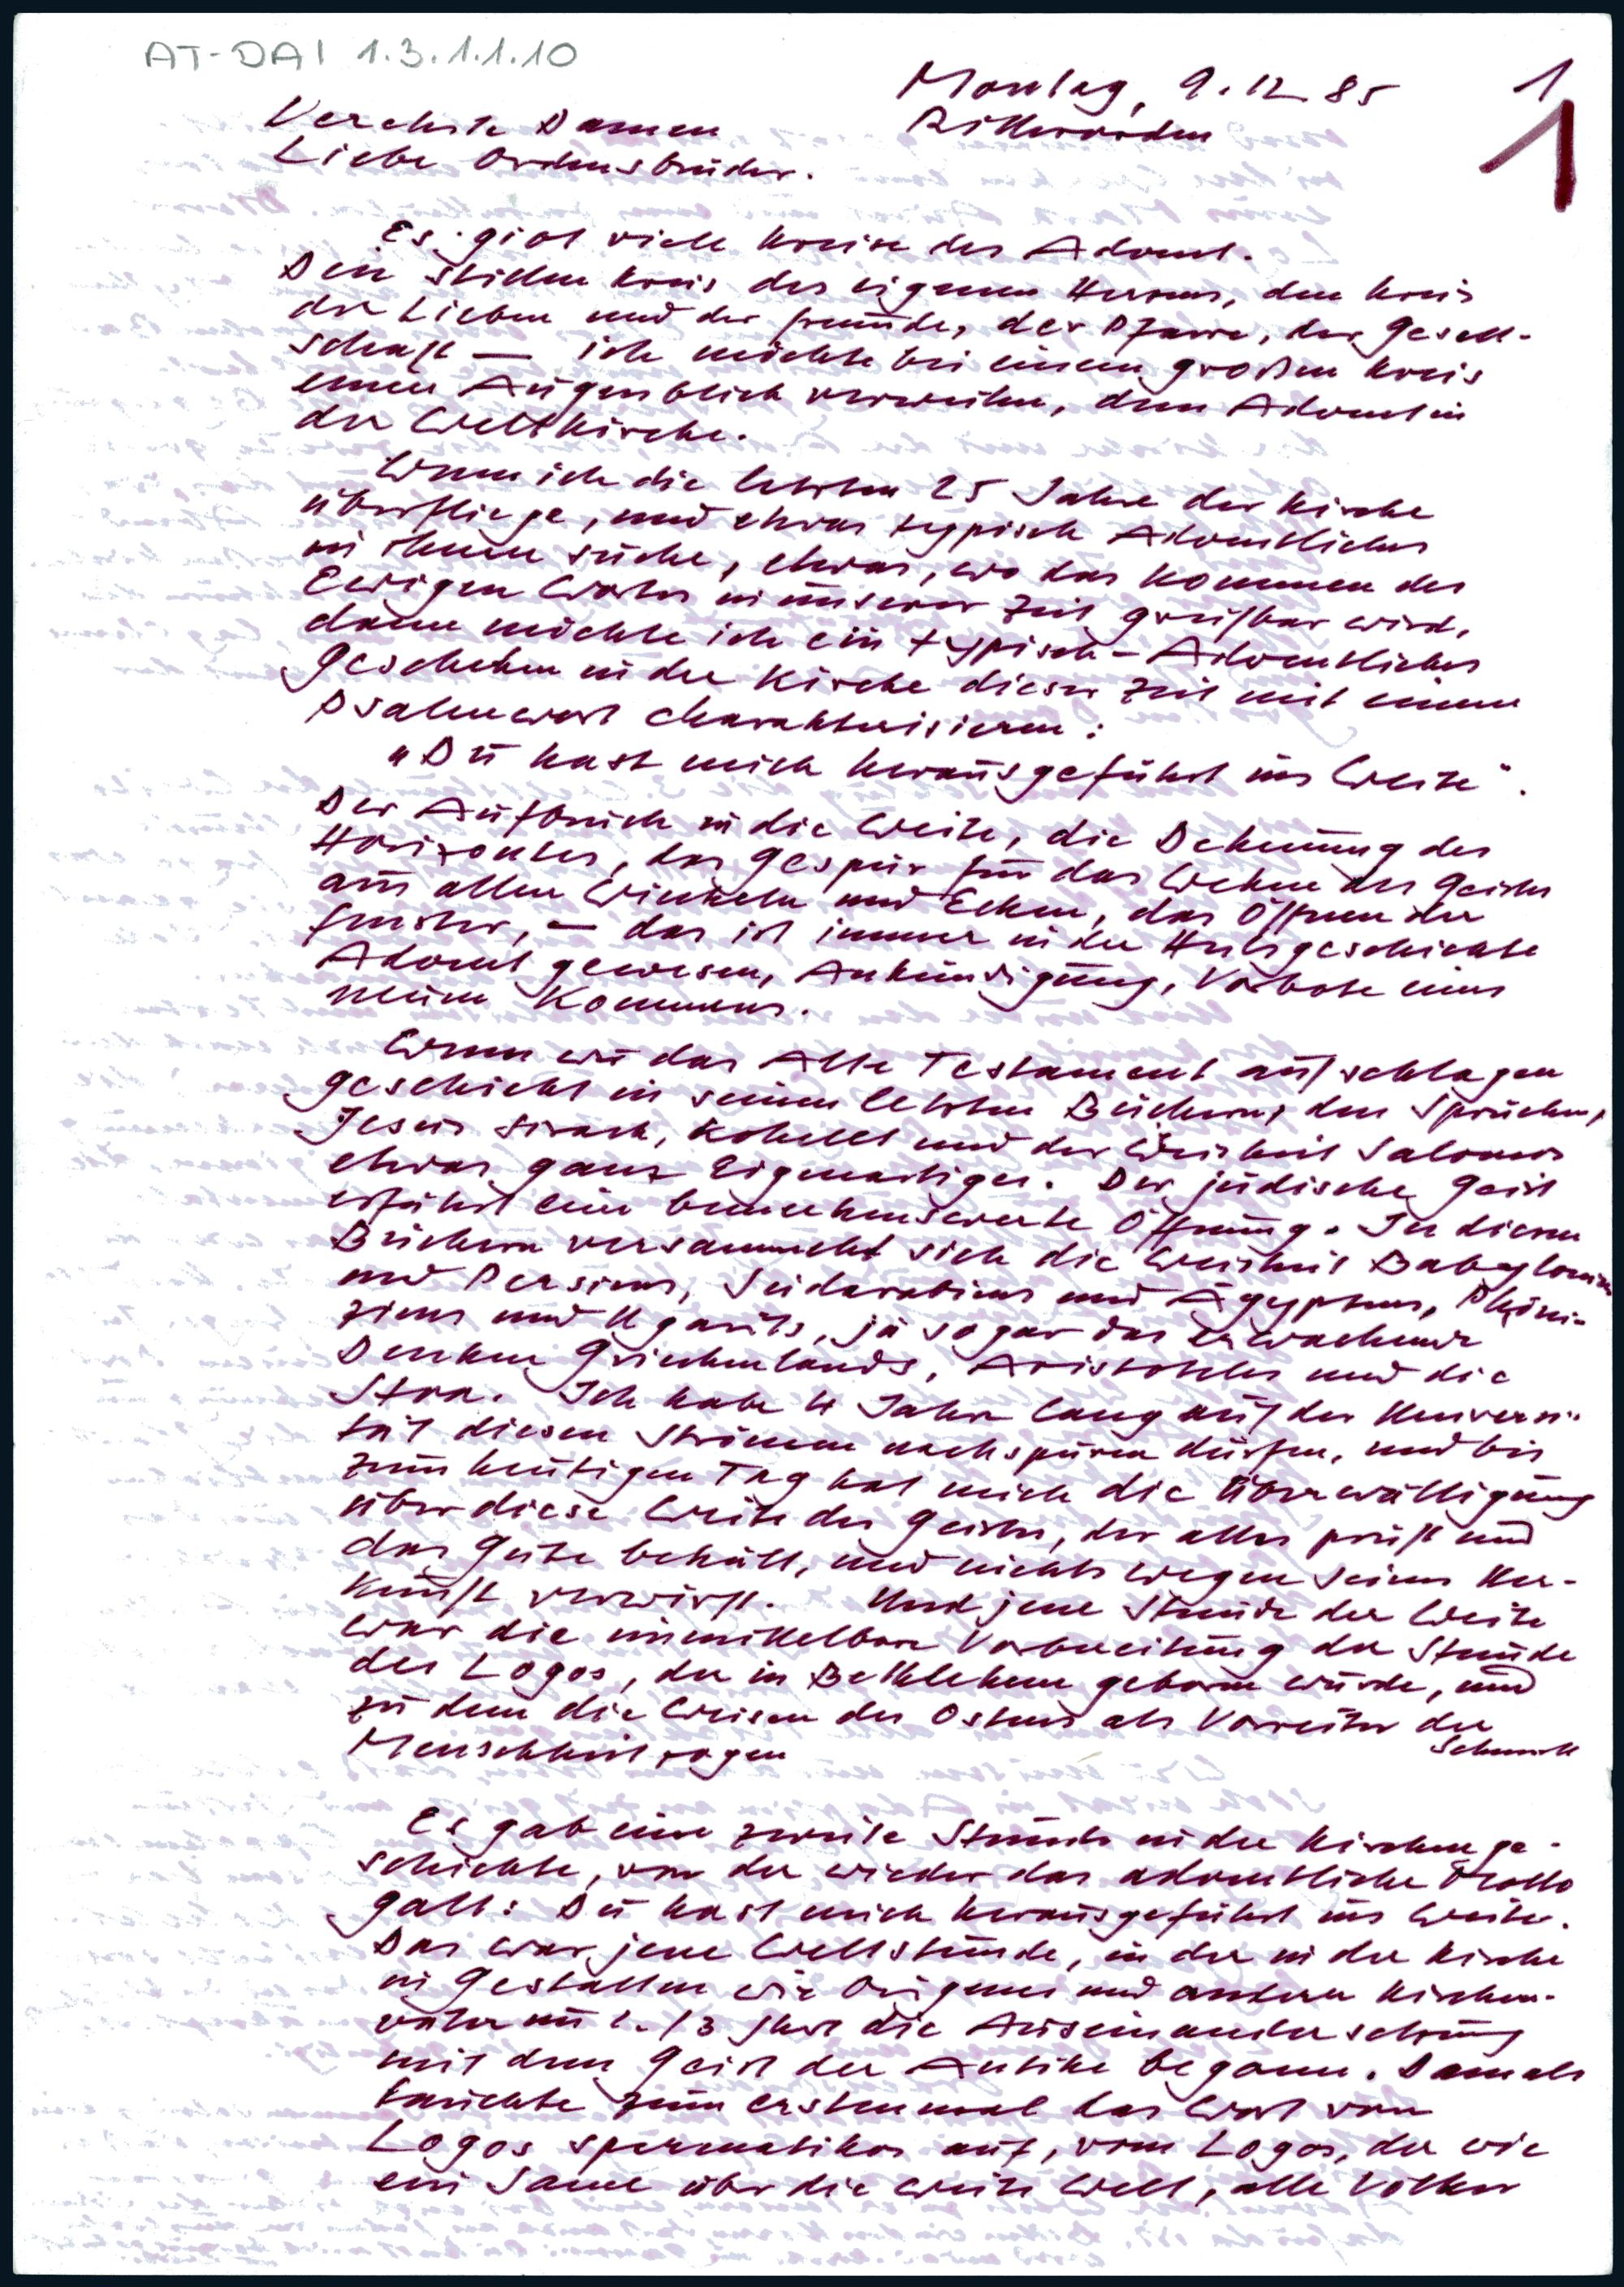 AT-DAI 1.3.1.1.10
Montag, 9.12.85
1
Ritterorden
1
Verehrte Damen
Liebe Ordensbrüder.
Es gibt viele Kreise des Advent.
Den stillen Kreis des eigenen Herzens, den Kreis
der Lieben und der Freunde, der Pfarre, der Gesell-
schaft — ich möchte bei einem großen Kreis
einen Augenblick verweilen, dem Advent in
der Weltkirche.
Wenn ich die letzten 25 Jahre der Kirche
überfliege, und etwas typisch Adventliches
in ihnen suche, etwas, wo das Kommen des
Ewigen Wortes in unserer Zeit greifbar wird,
dann möchte ich ein typisch-Adventliches
Geschehen in der Kirche dieser Zeit mit einem
Psalmwort charakterisieren:
"Du hast mich herausgeführt ins Weite".
Der Aufbruch in die Weite, die Dehnung des
Horizontes, das Gespür für das Wehen des Geistes
aus allen Winkeln und Ecken, das Öffnen der
Fenster, — das ist immer in der Heilsgeschichte
Advent gewesen, Ankündigung, Vorbote eines
neuen Kommens.
Wenn wir das Alte Testament aufschlagen
geschieht in seinen letzten Büchern, den Sprüchen,
Jesus Sirach, Kohelet und der Weisheit Salomos
etwas ganz Eigenartiges. Der jüdische Geist
erfährt eine bemerkenswerte Öffnung. In diesen
Büchern versammelt sich die Weisheit Babyloniens
und Persiens, Südarabiens und Ägyptens, Phöni-
ziens und Ugarits, ja sogar das erwachende
Denken Griechenlands, Aristoteles und die
Stoa. Ich habe 4 Jahre lang auf der Universi-
tät diesen Strömen nachspüren dürfen, und bis
zum heutigen Tag hat mich die Überwältigung
über diese Weite des Geistes, der alles prüft und
das Gute behält, und nichts wegen seiner Her-
kunft verwirft. Und jene Stunde der Weite
war die unmittelbare Vorbereitung der Stunde
des Logos, der in Bethlehem geboren wurde, und
zu dem die Weisen des Ostens als Vorreiter der
Menschheit zogen
Es gab eine zweite Stunde in der Kirchenge-
schichte, von der wieder das adventliche Motto
galt: Du hast mich herausgeführt ins Weite.
Das war jene Weltstunde, in der in der Kirche
in Gestalten wie Origenes und anderen Kirchen-
vätern im 2./3 Jhdt die Auseinandersetzung
mit dem Geist der Antike begann. Damals
tauchte zum erstenmal das Wort vom
Logos spermatikos auf, vom Logos, der wie
ein Same über die weite Welt, alle Völker